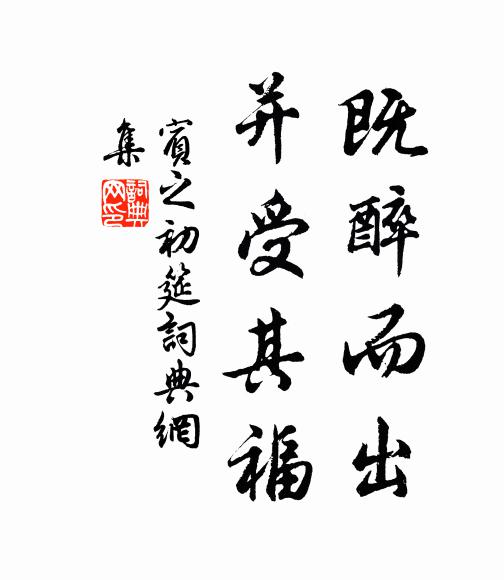 既醉而出
并受其福
賓之初筵詞典網
集
詞典
网印